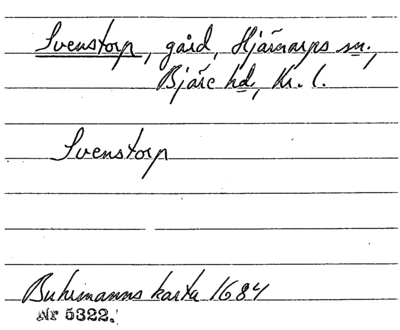 Svenstorp, gård, Hjärnarps sn.,
Bjäre hd., Kr. l.
Svenstorp
Buhrmanns karta 1684
Nr 5322.